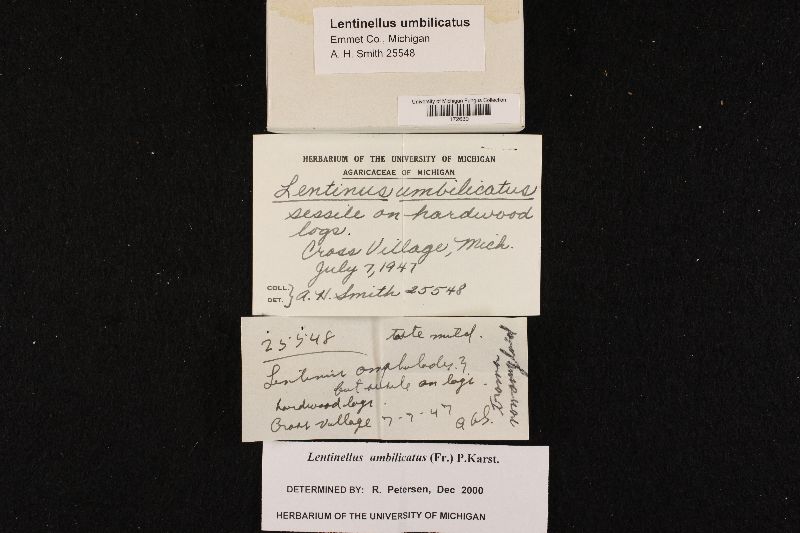 Lentinellus umbilicatus
Emmet Co., Michigan
A. H. Smith 25548
University of Michigan Fungus Collection
HERBARIUM OF THE UNIVERSITY OF MICHIGAN
AGARICACEAE OF MICHIGAN
Lentinus umbilicatus
sessile on hardwood
logs.
Cross Village, Mich.
July 7, 1947
COLL.
DET. } A. H. Smith 25548
25548 taste mild.
Lentinus
but sessile on logs.
hardwood logs.
Cross Village 7-7-47
AHS.
Lentinellus umbilicatus (Fr.) P.Karst.
DETERMINED BY: R. Petersen, Dec 2000
HERBARIUM OF THE UNIVERSITY OF MICHIGAN